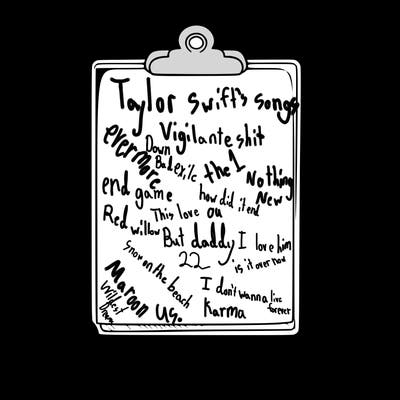 Taylor swift's songs
Vigilante shit
evermore
Down
Bad
exile
the 1
Nothing
New
end game
how did it end
This love
ou
Red
willow
But daddy I love him
22
is it over now
snow on the beach
I don't wanna live
forever
Maroon
wildest
us.
Karma